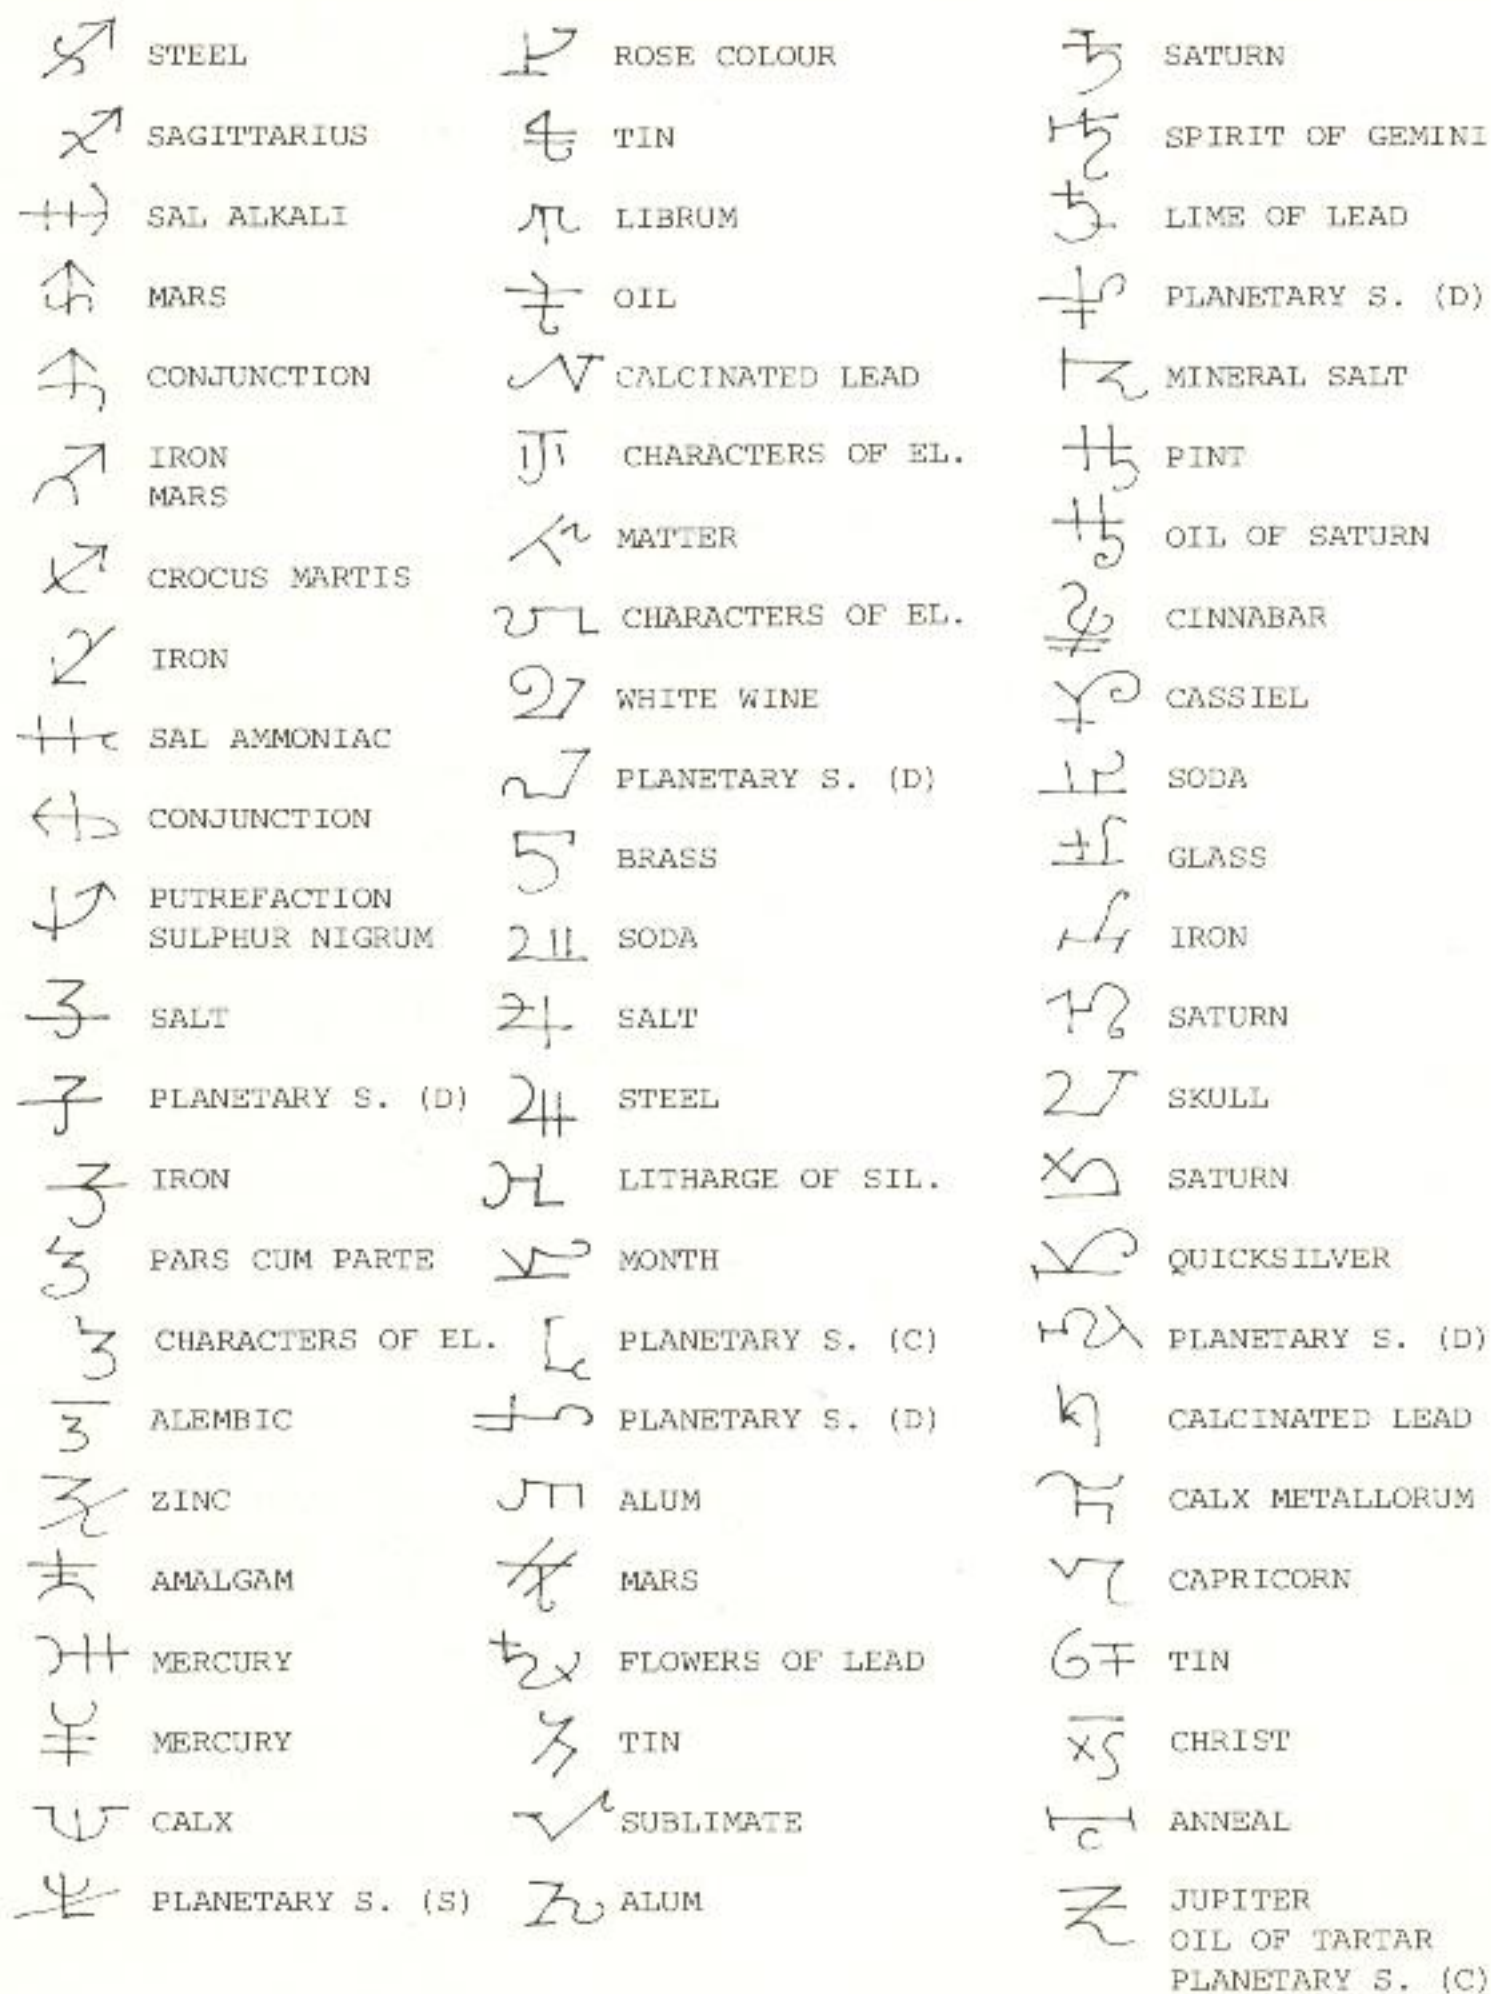 STEEL
SAGITTARIUS
SAL ALKALI
MARS
CONJUNCTION
IRON
MARS
CROCUS MARTIS
IRON
SAL AMMONIAC
CONJUNCTION
PUTREFACTION
SULPHUR NIGRUM
SALT
PLANETARY S. (D)
IRON
PARS CUM PARTE
CHARACTERS OF EL.
ALEMBIC
ZINC
AMALGAM
MERCURY
MERCURY
CALX
PLANETARY S. (S)
ROSE COLOUR
TIN
LIBRUM
OIL
CALCINATED LEAD
CHARACTERS OF EL.
MATTER
CHARACTERS OF EL.
WHITE WINE
PLANETARY S. (D)
BRASS
SODA
SALT
STEEL
LITHARGE OF SIL.
MONTH
PLANETARY S. (C)
PLANETARY S. (D)
ALUM
MARS
FLOWERS OF LEAD
TIN
SUBLIMATE
ALUM
SATURN
SPIRIT OF GEMINI
LIME OF LEAD
PLANETARY S. (D)
MINERAL SALT
PINT
OIL OF SATURN
CINNABAR
CASSIEL
SODA
GLASS
IRON
SATURN
SKULL
SATURN
QUICKSILVER
PLANETARY S. (D)
CALCINATED LEAD
CALX METALLORUM
CAPRICORN
TIN
CHRIST
ANNEAL
JUPITER
OIL OF TARTAR
PLANETARY S. (C)